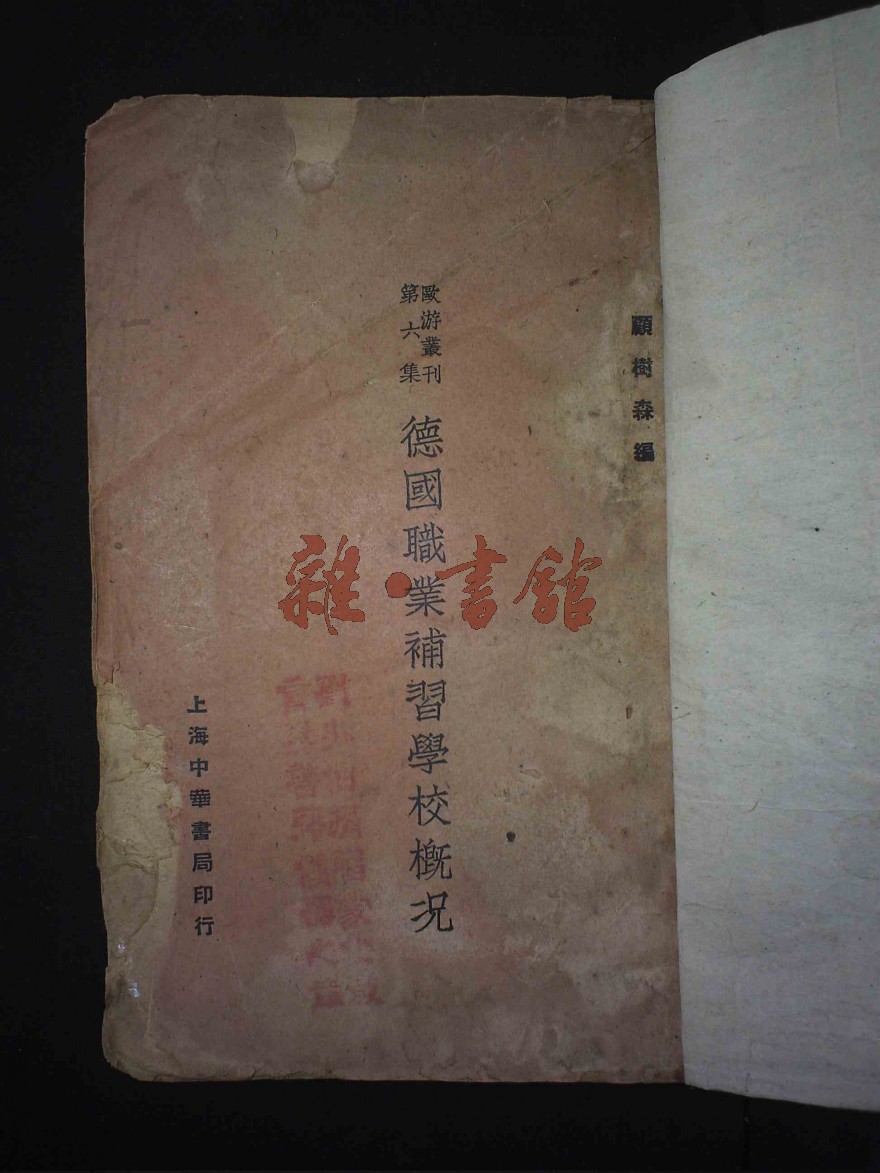 顧樹森編
歐游叢刊
第六集
德國職業補習學校概況
上海中華書局印行
雜·書館